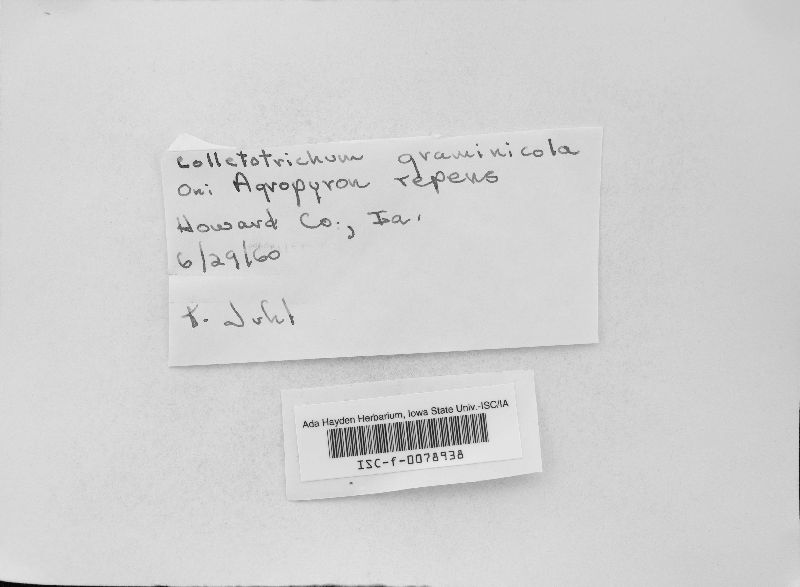 Colletotrichum graminicola
On: Agropyron repens
Howard Co., Ia.
6/29/60
Ada Hayden Herbarium, Iowa State Univ.-ISC/IA
ISC-f-0078938